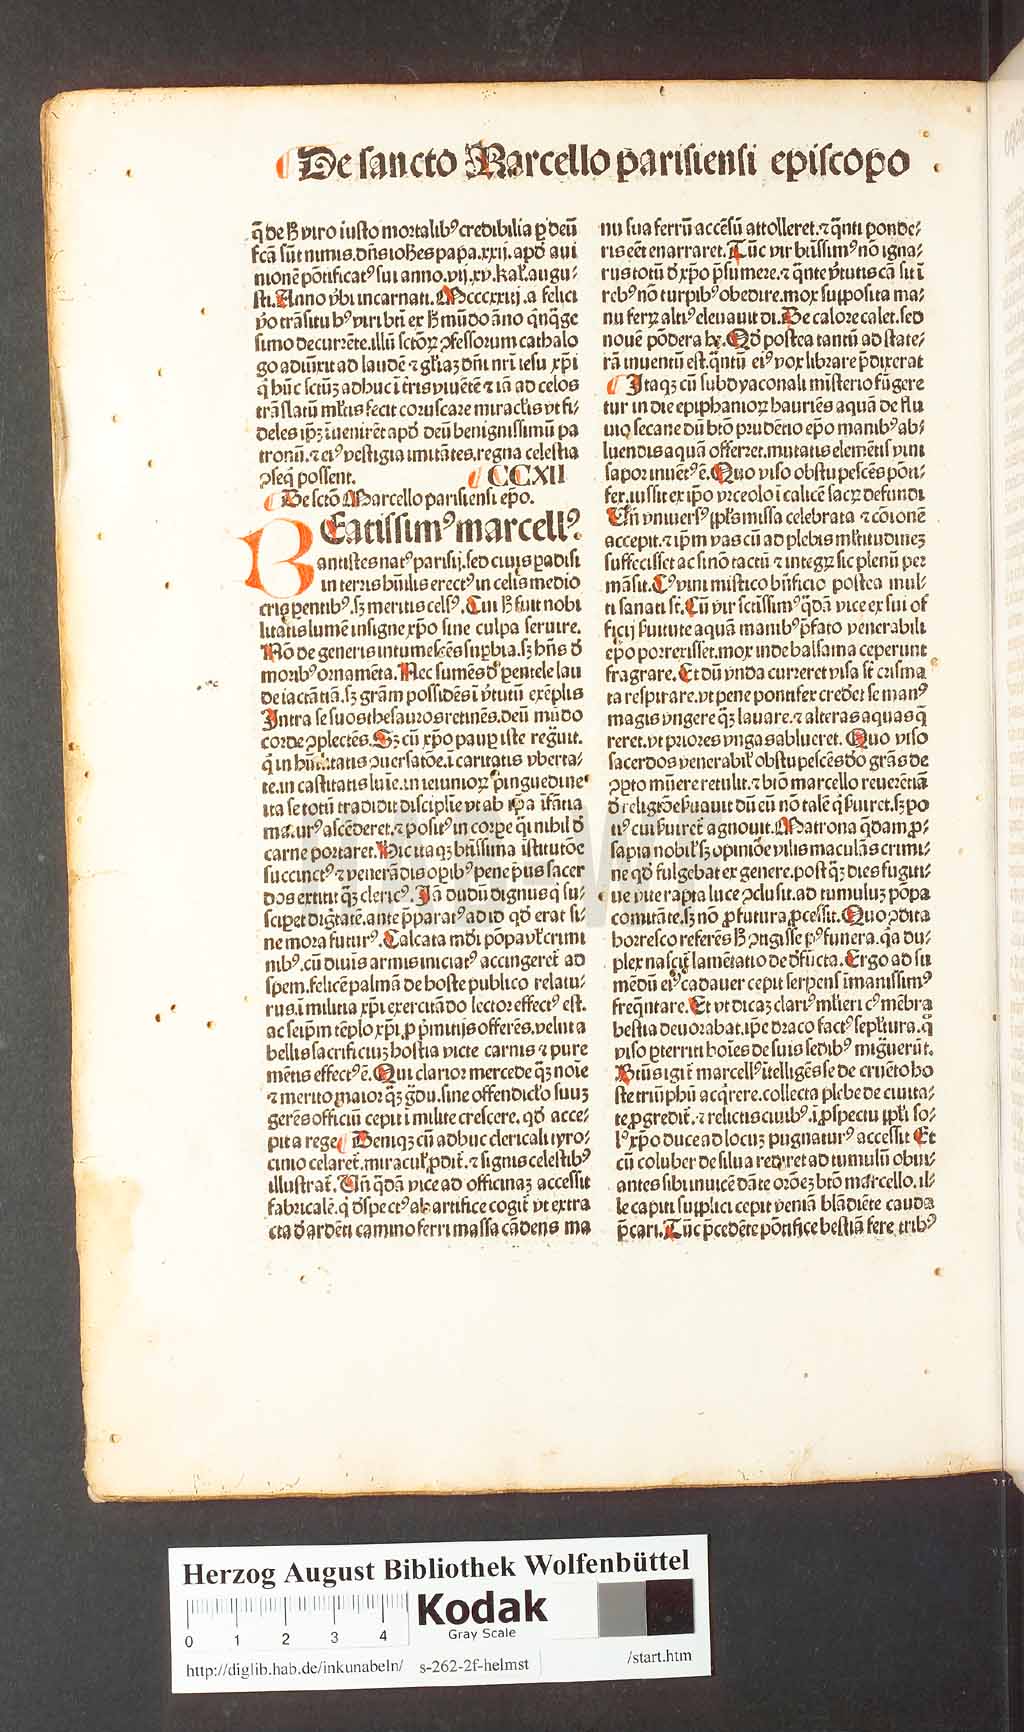 De sancto Marcello parisiensi episcopo
q̄ de hͦ viro iusto mortalibꝰ credibilia ꝑ deū
fcā sūt nimis. dn̄s iohes papa. xxij. apd̓ aui
nionē pōtificatꝰ sui anno. vij. xv. kal̓. augu-
sti. Anno v̓bi incarnati. Mcccxxiij. a felici
v̓o trāsitu bꝰ viri bti̓ ex hͦ mūdo āno q̇nq̇ge
simo decurrēte. illū sctōꝝ ꝯfessorum cathalo
go adiūxit ad laudē ⁊ gl̓iaꝫ dn̄i nr̄i iesu xp̄i
q̇ hūc sctūꝫ adhuc ī tris viuētē ⁊ iā ad celos
trāslatū ml̓tis fecit coruscare miracl̓is vt fi-
deles ip̄ꝫ īuenirēt apd̓ deū benignissimū pa
tronū. ⁊ eiꝰ vestigia imitātes. regna celestia
ꝯseq̇ possent. CCXII
De sctō Marcello parisiensi ep̄o.
BEatissimꝰ marcellꝰ
antistes natꝰ parisij. sed ciuis ꝑadisi
in terris hūilis erectꝰ in celis medio
cris ꝑentibꝰ. sꝫ meritis celsꝰ. Cui hͦ fuit nobi
litatis lumē insigne xp̄o sine culpa seruire.
Nō de generis intumescēs suꝑbia. sꝫ hn̄s d̓
moribꝰ ornamēta. Nec sumēs d̓ ꝑentele lau
de iactātiā. sꝫ grām possidēs ī v̓tutū exēplis
Intra se suos thesauros retinēs. deū mūdo
corde ꝯplectēs. Sꝫ cū xp̄o pauꝑ iste regͣuit.
q̇ in hūilitatis ꝯuersatōe. ī caritatis vberta-
te. in castitatis luīe. in ieiunioꝝ pinguedine
ita se totū tradidit discipline vt ab ip̄a īfātia
maturꝰ ascēderet. ⁊ positꝰ in corꝑe q̇ nihil d̓
carne portaret. Hic itaqꝫ btīssimꝰ īstitutōe
succinctꝰ ⁊ venerādis oꝑibꝰ pene pͥus sacer
dos extitit q̇ꝫ clericꝰ. Iā dudū dignus q̇ su-
sciꝑet dignitatē. ante p̄paratꝰ ad id qd̓ erat si-
ne mora futurꝰ. Calcata mūdi pōpa vl̓ crimi
nibꝰ. cū diuis armis iniciatꝰ accingeret̓ ad
spem. felicē palmā de hoste publico relatu-
rus. ī militia xp̄i exercitādo lector effectꝰ est.
ac seip̄m tēplo xp̄i. ꝓ pͥmitijs offerēs. velut a
bellis sacrificiuꝫ hostia victe carnis ⁊ pure
mētis effectꝰ ē. Qui clarior mercede q̇ꝫ noīe
⁊ merito maior q̇ꝫ gͣdu. sine offendicl̓o suuꝫ
gerēs officiū cepit ī milite crescere. qd̓ acce-
pit a rege Deniqꝫ cū adhuc clericali tyro-
cinio celaret̓. miracul̓. ꝓdit̓. ⁊ signis celestibꝰ
illustrat̓. Un̄ q̇dā vice ad officinaꝫ accessit
fabricalē. q̇ d̓spectꝰ ab artifice cogit̓ vt extra
cta d̓ ardēti camino ferri massa cādens ma
nu sua ferrū accēsū attolleret. ⁊ q̇nti ponde-
ris eēt enarraret. Tūc vir btīssimꝰ nō igna-
rus totū d̓ xp̄o p̄sumere. ⁊ q̇nte v̓tutis cā sit ī
rebꝰ nō turpibꝰ obedire. mox supposita ma-
nu ferꝝ altiꝰ eleuauit di. De calore calet. sed
nouē pōdera hꝫ. Qd̓ postea tantū ad state-
rā inuentū est. q̇ntū eiꝰ vox librare p̄dixerat
Itaqꝫ cū subdyaconali misterio fūgere
tur in die epiphanioꝝ hauriēs aquā de flu
uio secane dū btō prudētio ep̄o manibꝰ ab-
luendis aquā offerret. mutatis elemētis vini
sapor inuētꝰ ē. Quo viso obstupescēs pōti-
fex. iussit ex ip̄o vrceolo ī calicē sacꝝ defundi
Un̄ vniuersꝰ ppl̓s missa celebrata ⁊ cōionē
accepit. ⁊ ip̄m vas cū ad plebis ml̓titudineꝫ
suffecisset ac si nō tactū ⁊ integꝝ sic plenū per
māsit. Cꝰ vini mistico bn̄ficio postea mul-
ti sanati st̄. Cū vir sctīssimꝰ q̇dā vice ex sui of
ficij suitute aquā manibꝰ p̄fato venerabili
ep̄o porrexisset. mox inde balsama ceperunt
fragrare. Et dū vnda curreret visa st̄ crisma
ta respirare. vt pene pontifex crederet se manꝰ
magis vngere q̇ꝫ lauare. ⁊ alteras aquas q̄
reret. vt priores vnga s ablueret. Quo viso
sacerdos venerabil̓ obstupescēs d̓o grās de
ꝯpto mūere retulit. ⁊ btō marcello reuerētiā
d̓ religiōe suauit dū cū nō talē q̇ suiret. sꝫ po
tiꝰ cui suiret̓ agnouit. Matrona q̇dam ꝓ-
sapia nobil̓ sꝫ opiniōe vilis maculās crimi-
ne qd̓ fulgebat ex genere. post q̇ꝫ dies fugiti-
ue vite rapta luce ꝯclusit. ad tumuluꝫ pōpa
comitāte. sꝫ nō ꝓfutura ꝓcessit. Quo ꝯdita
horresco referēs hͦ ꝯtigisse pꝰ funera. q̇a du-
plex nascit̓ lamētatio de d̓fūcta. Ergo ad su
mēdū eiꝰ cadauer cepit serpens īmanissimꝰ
freq̇ntare. Et vt dicaꝫ clariꝰ ml̓ieri cꝰ mēbra
bestia deuorabat. ip̄e draco factꝰ sepl̓tura. q̊
viso ꝑterriti hoīes de suis sedibꝰ migͣuerūt.
Btūs igit̓ marcellꝰ ītelligēs se de cruēto ho
ste triūphū acq̇rere. collecta plebe de ciuita-
te ꝓgredit̓. ⁊ relictis ciuibꝰ. ī ꝓspectu ppl̓i so-
lꝰ xp̄o duce ad locuꝫ pugnaturꝰ accessit Et
cū coluber de silua rediret ad tumulū obui-
antes sibi inuicē dāte orōeꝫ btō marcello. il-
le capiti supplici cepit veniā blādiēte cauda
p̄cari. Tūc p̄cedēte pōtifice bestiā fere tribꝰ
Herzog August Bibliothek Wolfenbüttel
0 1 2 3 4
Kodak
Gray Scale
http://diglib.hab.de/inkunabeln/ s-262-2f-helmst /start.htm